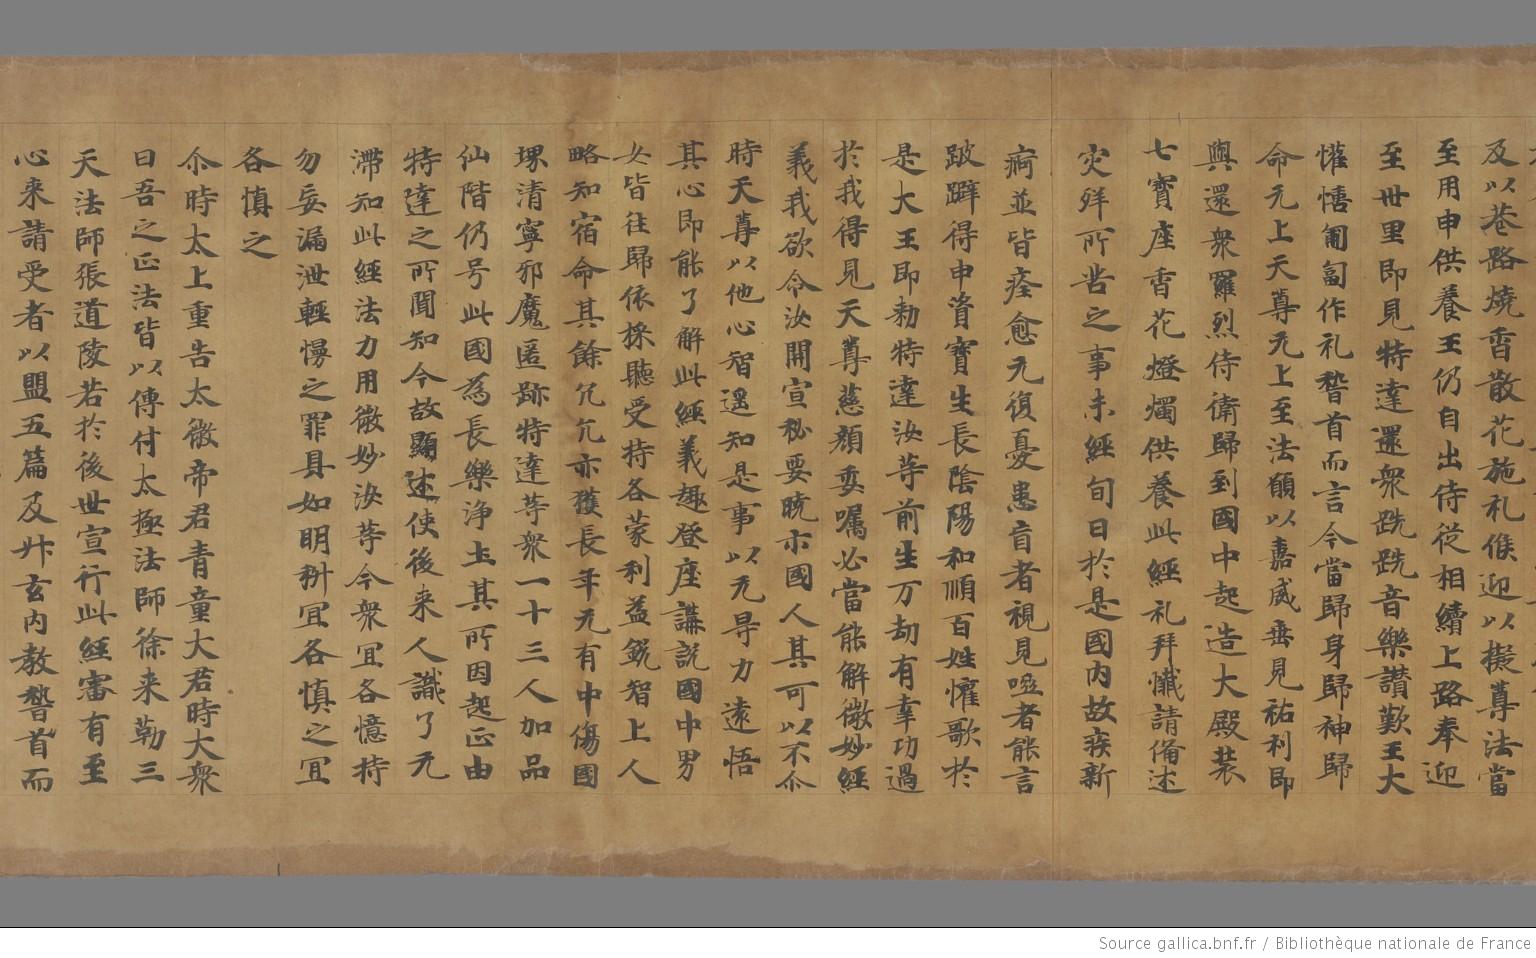 及以巷路燒香散花施礼候迎以擬尊法當
至用申供養王仍自出侍從相續上路奉迎
至世里即見特達還衆跣跣音樂讃歎王大
懽憘匍匐作礼稽首而言今當歸身歸神歸
命元上天尊元上至法願以嘉威垂見祐利即
與還衆羅烈侍衛歸到國中起造大殿裝
七寶座香花燈燭供養此經礼拜懺請俻述
灾殃所苦之事未經旬日於是國內故疾新
痾並皆痊愈无復憂患盲者視見啞者能言
跛躃得申資寶生長陰陽和順百姓懽歌於
是大王即勑特達汝等前生万劫有幸功過
於我得見天尊慈顔要囑必當能解微妙經
義我欲令汝開宣秘要曉示國人其可以不尒
時天尊以他心智遥知是事以无㝵力遠悟
其心即能了解此經義趣登座講説國中男
女皆往歸依採聽受持各蒙利益鋭智上人
略知宿命其餘冗冗亦獲長年无有中傷國
堺清寧邪魔匿跡特達等衆一十三人加品
仙階仍号此國為長樂浄土其所因起正由
特達之所聞知今故顯述使後来人識了无
滯知此經法力用微妙汝等今衆冝各憶持
勿妄漏泄輕慢之罪具如明科冝各慎之冝
各慎之
尒時太上重告太微帝君青童大君時大衆
曰吾之正法皆以傳付太極法師徐来勒三
天法師張道陵若於後世宣行此經審有至
心来請受者以盟五篇及廾玄内教稽首而
Source gallica.bnf.fr / Bibliothèque nationale de France